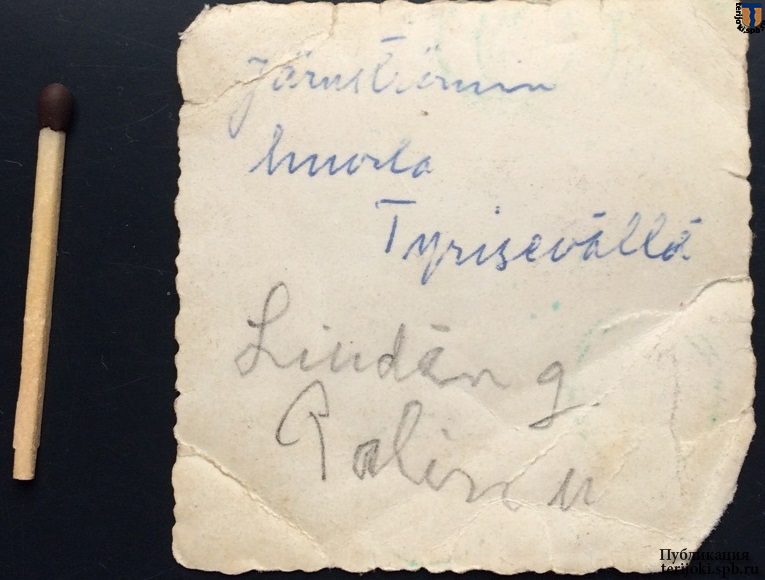 Järnströmin
huvila
Tyrisevällä
Lindän g
Публикация
terijoki.spb.ru